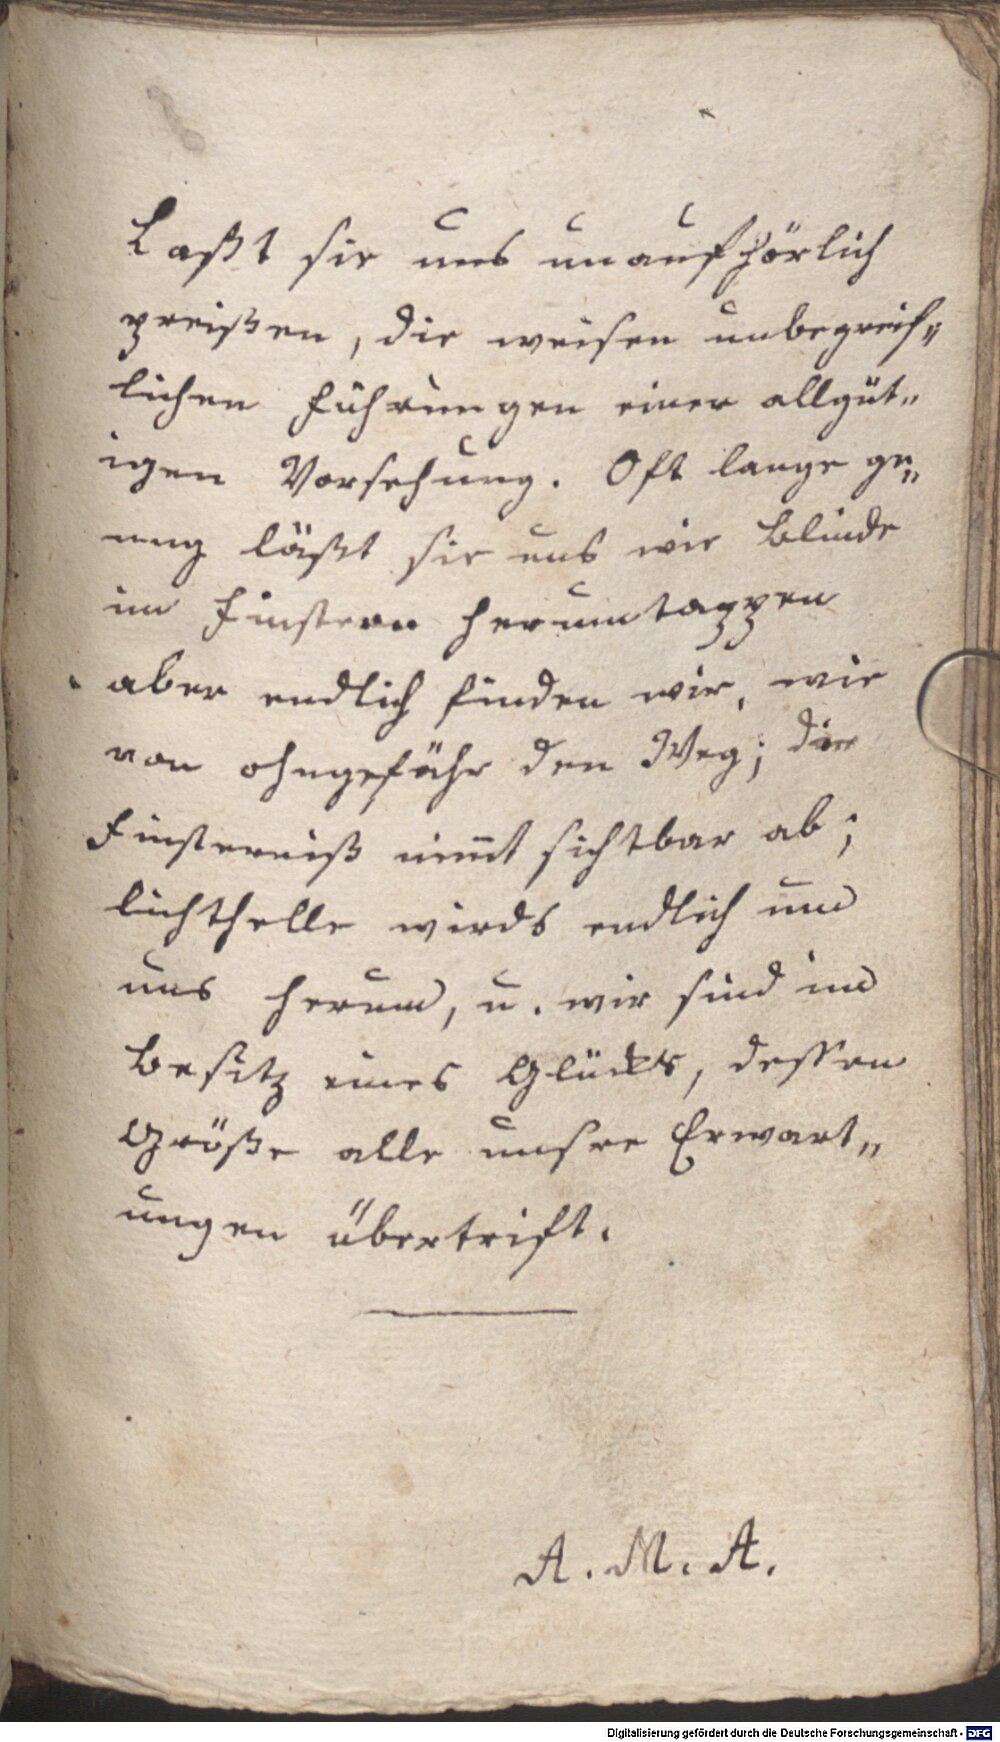 Laßt sie uns unaufhörlich
preißen, die weisen unbegreif„
lichen Führungen einer allgüt„
igen Vorsehung. Oft lange ge„
nug läßt sie uns wie Blinde
im Finstern herumtappen
aber endlich finden wir, wie
von ohngefähr den Weg; die
Finsterniß nim̅t sichtbar ab;
lichthelle wirds endlich um
uns herum, u. wir sind im
Besitz eines Glücks, dessen
Größe alle unsre Erwart„
ungen übertrift.
A. M. A.
Digitalisierung gefördert durch die Deutsche Forschungsgemeinschaft - DFG